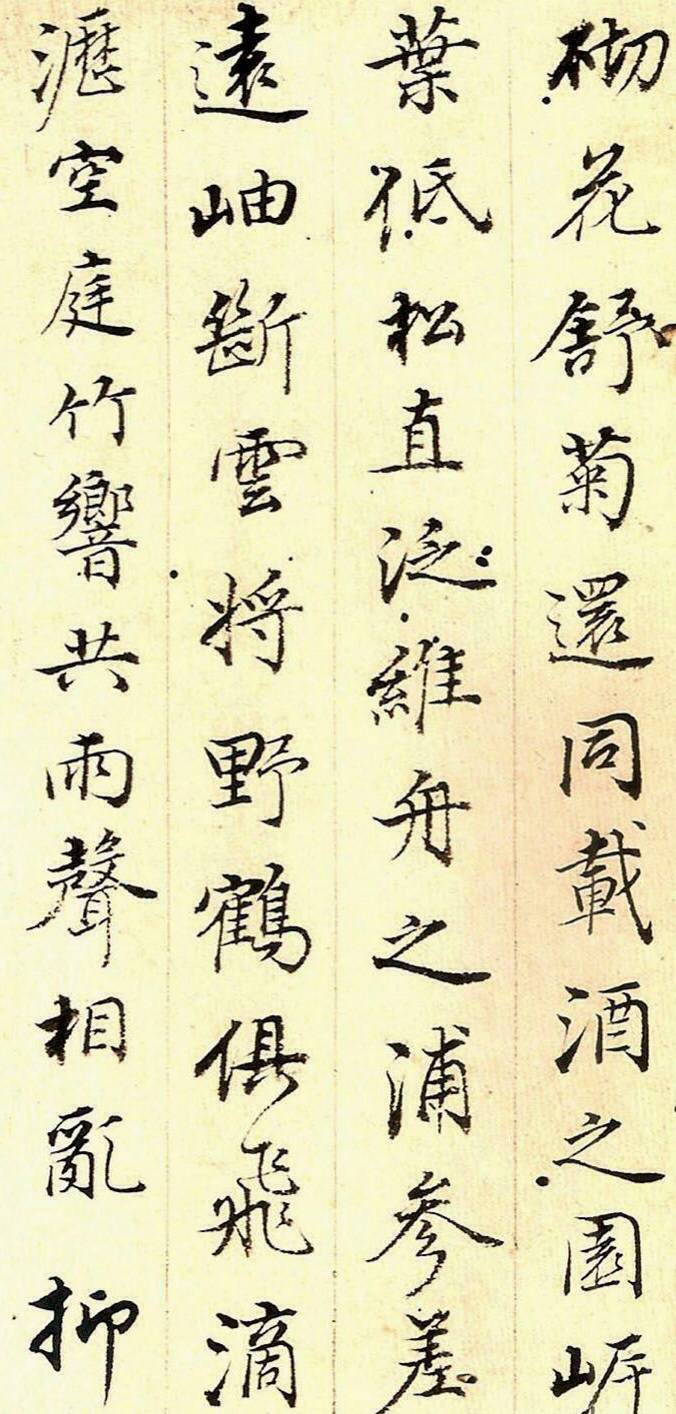 砌花舒菊還同載酒之園岸
葉低松直泛維舟之浦參差
遠岫斷雲将野鶴俱飛滴
瀝空庭竹響共雨聲相亂抑